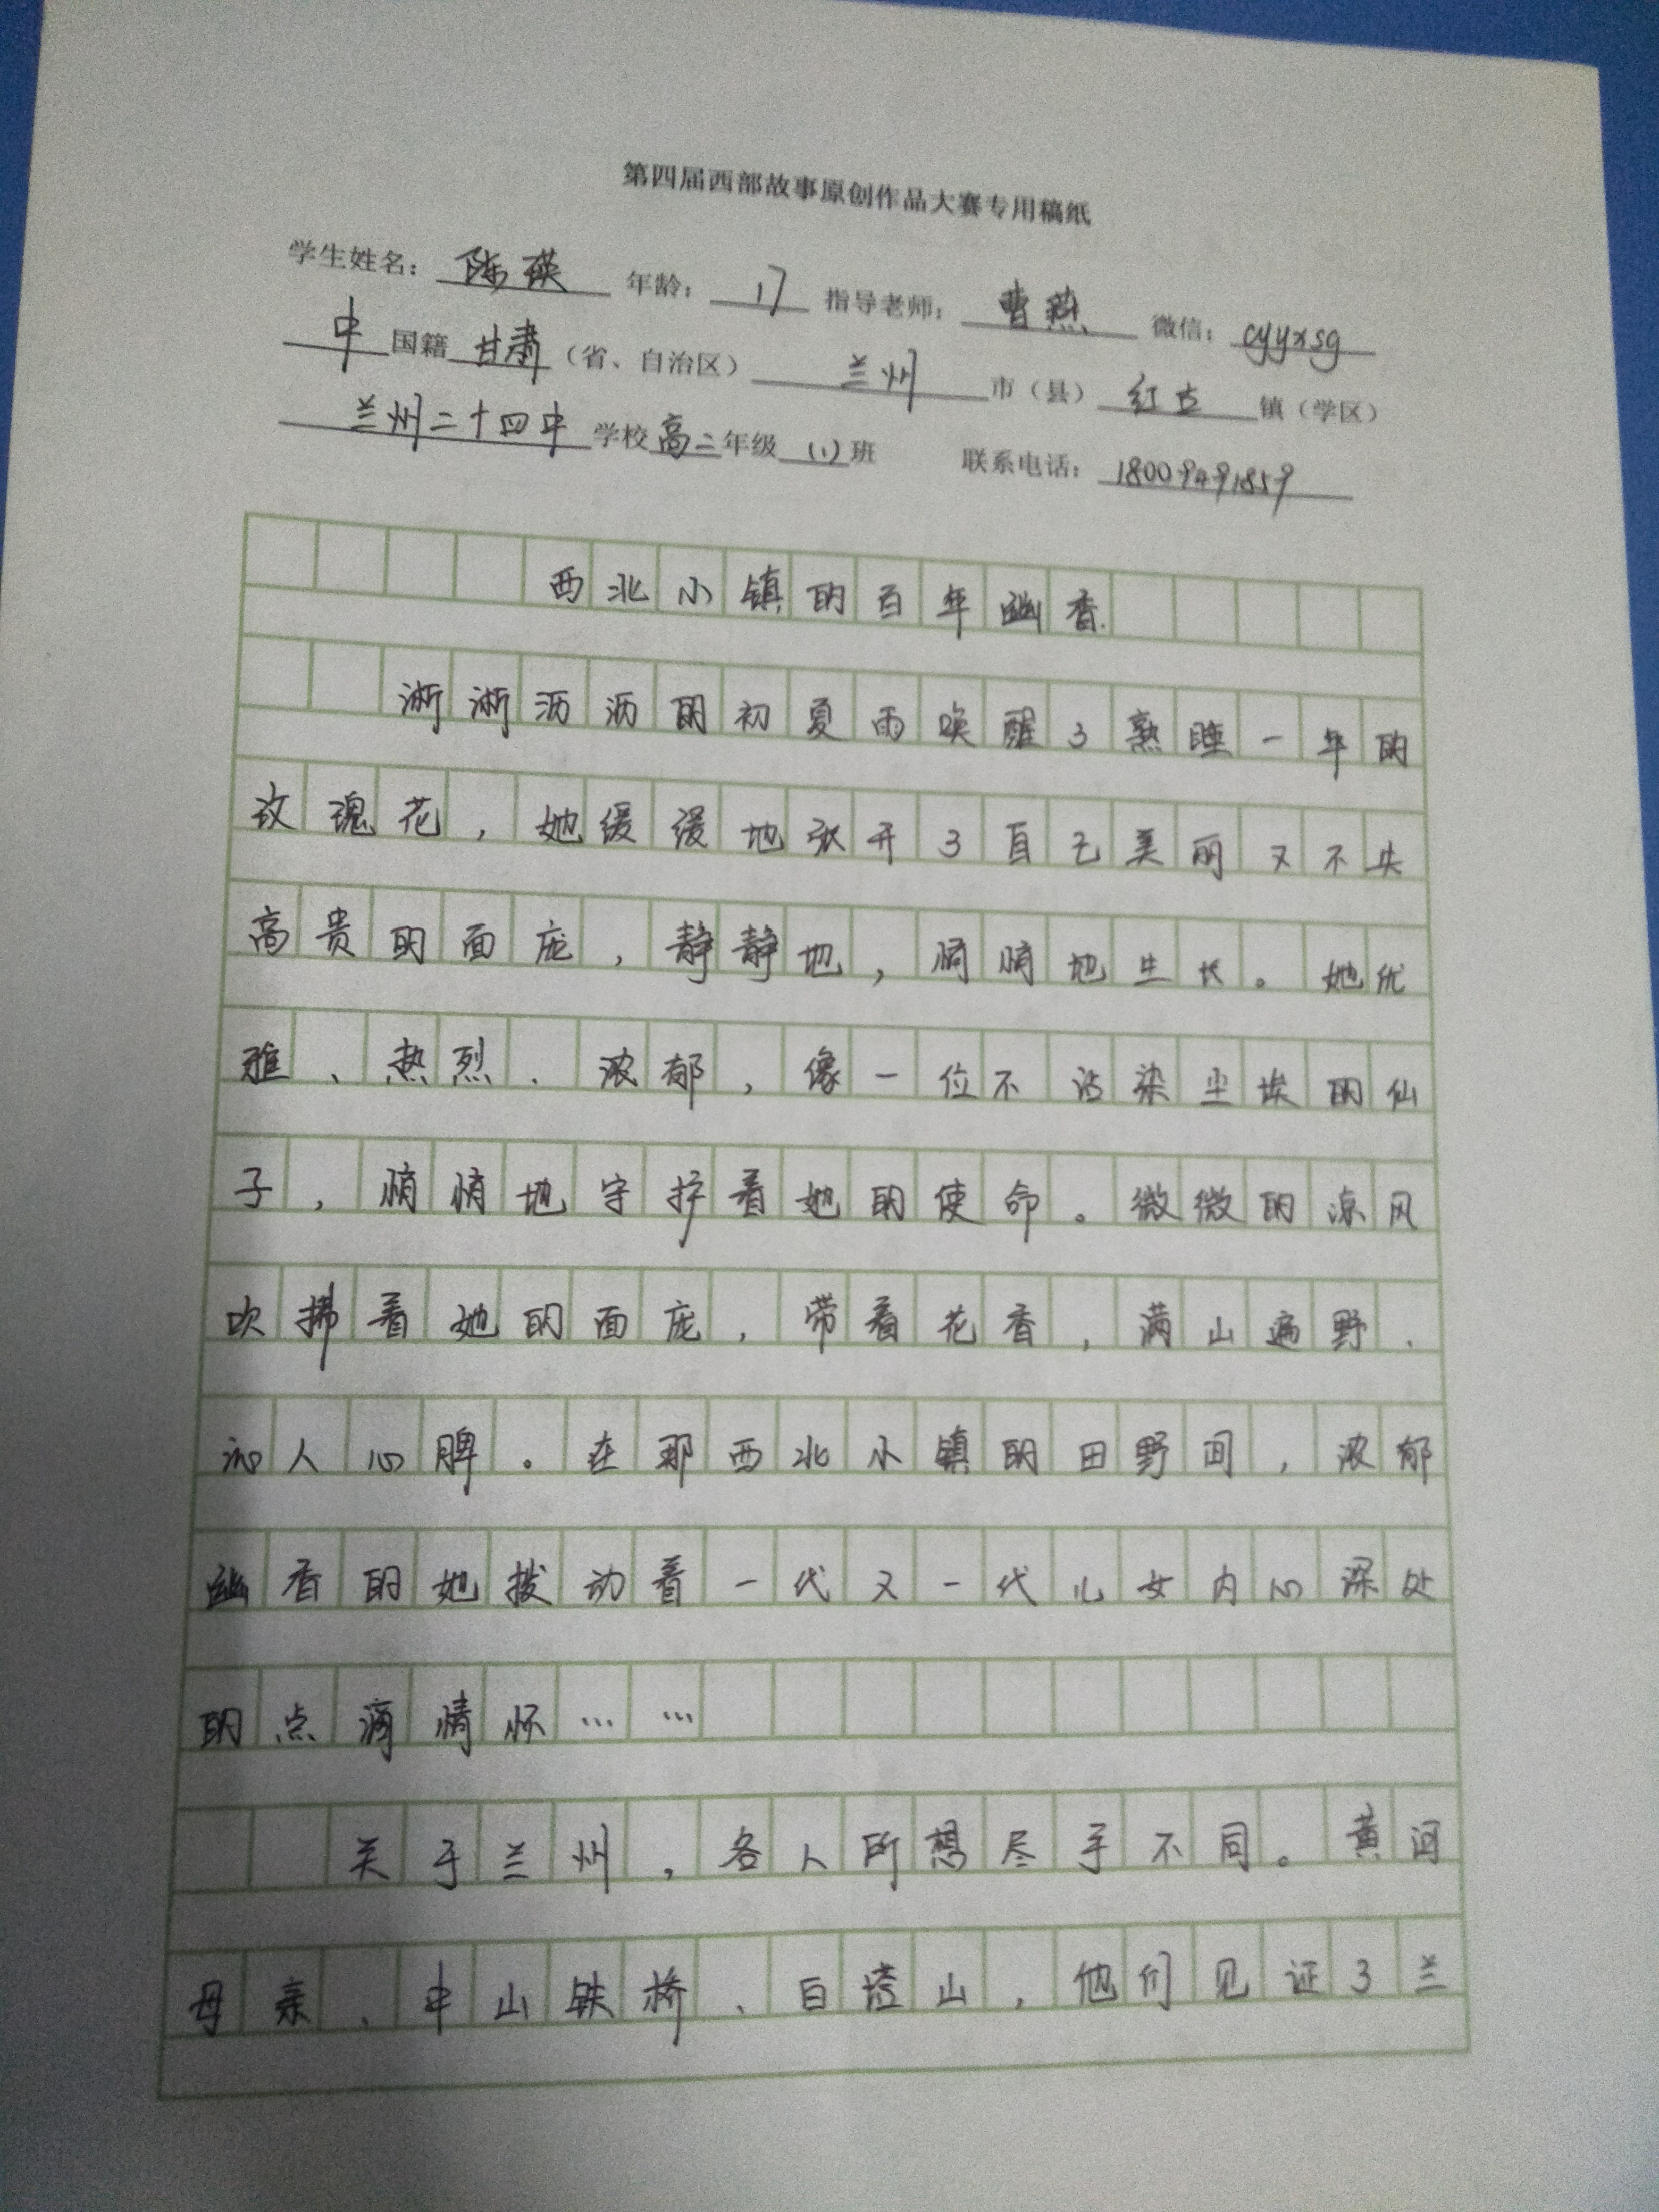 第四届西部故事原创作品大赛专用稿纸
学生姓名：陈瑛 年龄：17 指导老师：曹燕 微信：cyyxsg
中国籍 甘肃（省、自治区） 兰州 市（县） 红古 镇（学区）
兰州二十四中 学校 高二年级 （1）班 联系电话：18009491859
西北小镇的百年幽香
淅淅沥沥的初夏雨唤醒了熟睡一年的
玫瑰花，她缓缓地张开了自己美丽又不失
高贵的面庞，静静地，悄悄地生长。她优
雅、热烈、浓郁，像一位不沾染尘埃的仙
子，悄悄地守护着她的使命。微微的凉风
吹拂着她的面庞，带着花香，满山遍野、
沁人心脾。在那西北小镇的田野间，浓郁
幽香的她拨动着一代又一代儿女内心深处
的点滴情怀……
关于兰州，各人所想尽乎不同。黄河
母亲、中山铁桥、白塔山，他们见证了兰